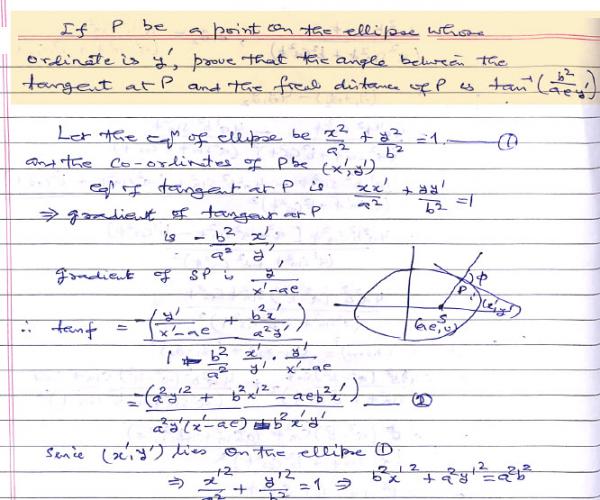 If P be a point on the ellipse whose
ordinate is y', prove that the angle between the
tangent at P and the focal distance of P is tan⁻¹(b²/aey')
Let the eqⁿ of ellipse be x²/a² + y²/b² = 1. —— ①
and the co-ordinates of P be (x', y')
eqⁿ of tangent at P is xx'/a² + yy'/b² = 1
⇒ gradient of tangent at P
is - b²/a² x'/y'
gradient of SP is y'/x'-ae
φ
P
(x', y')
S
(ae, 0)
∴ tanφ = -(y'/x'-ae + b²x'/a²y') / 1 - b²/a² x'/y' · y'/x'-ae
= -(a²y'² + b²x'² - aeb²x') / a²y'(x'-ae) - b²x'y' —— ②
Since (x', y') lies on the ellipse ①
⇒ x'²/a² + y'²/b² = 1 ⇒ b²x'² + a²y'² = a²b²